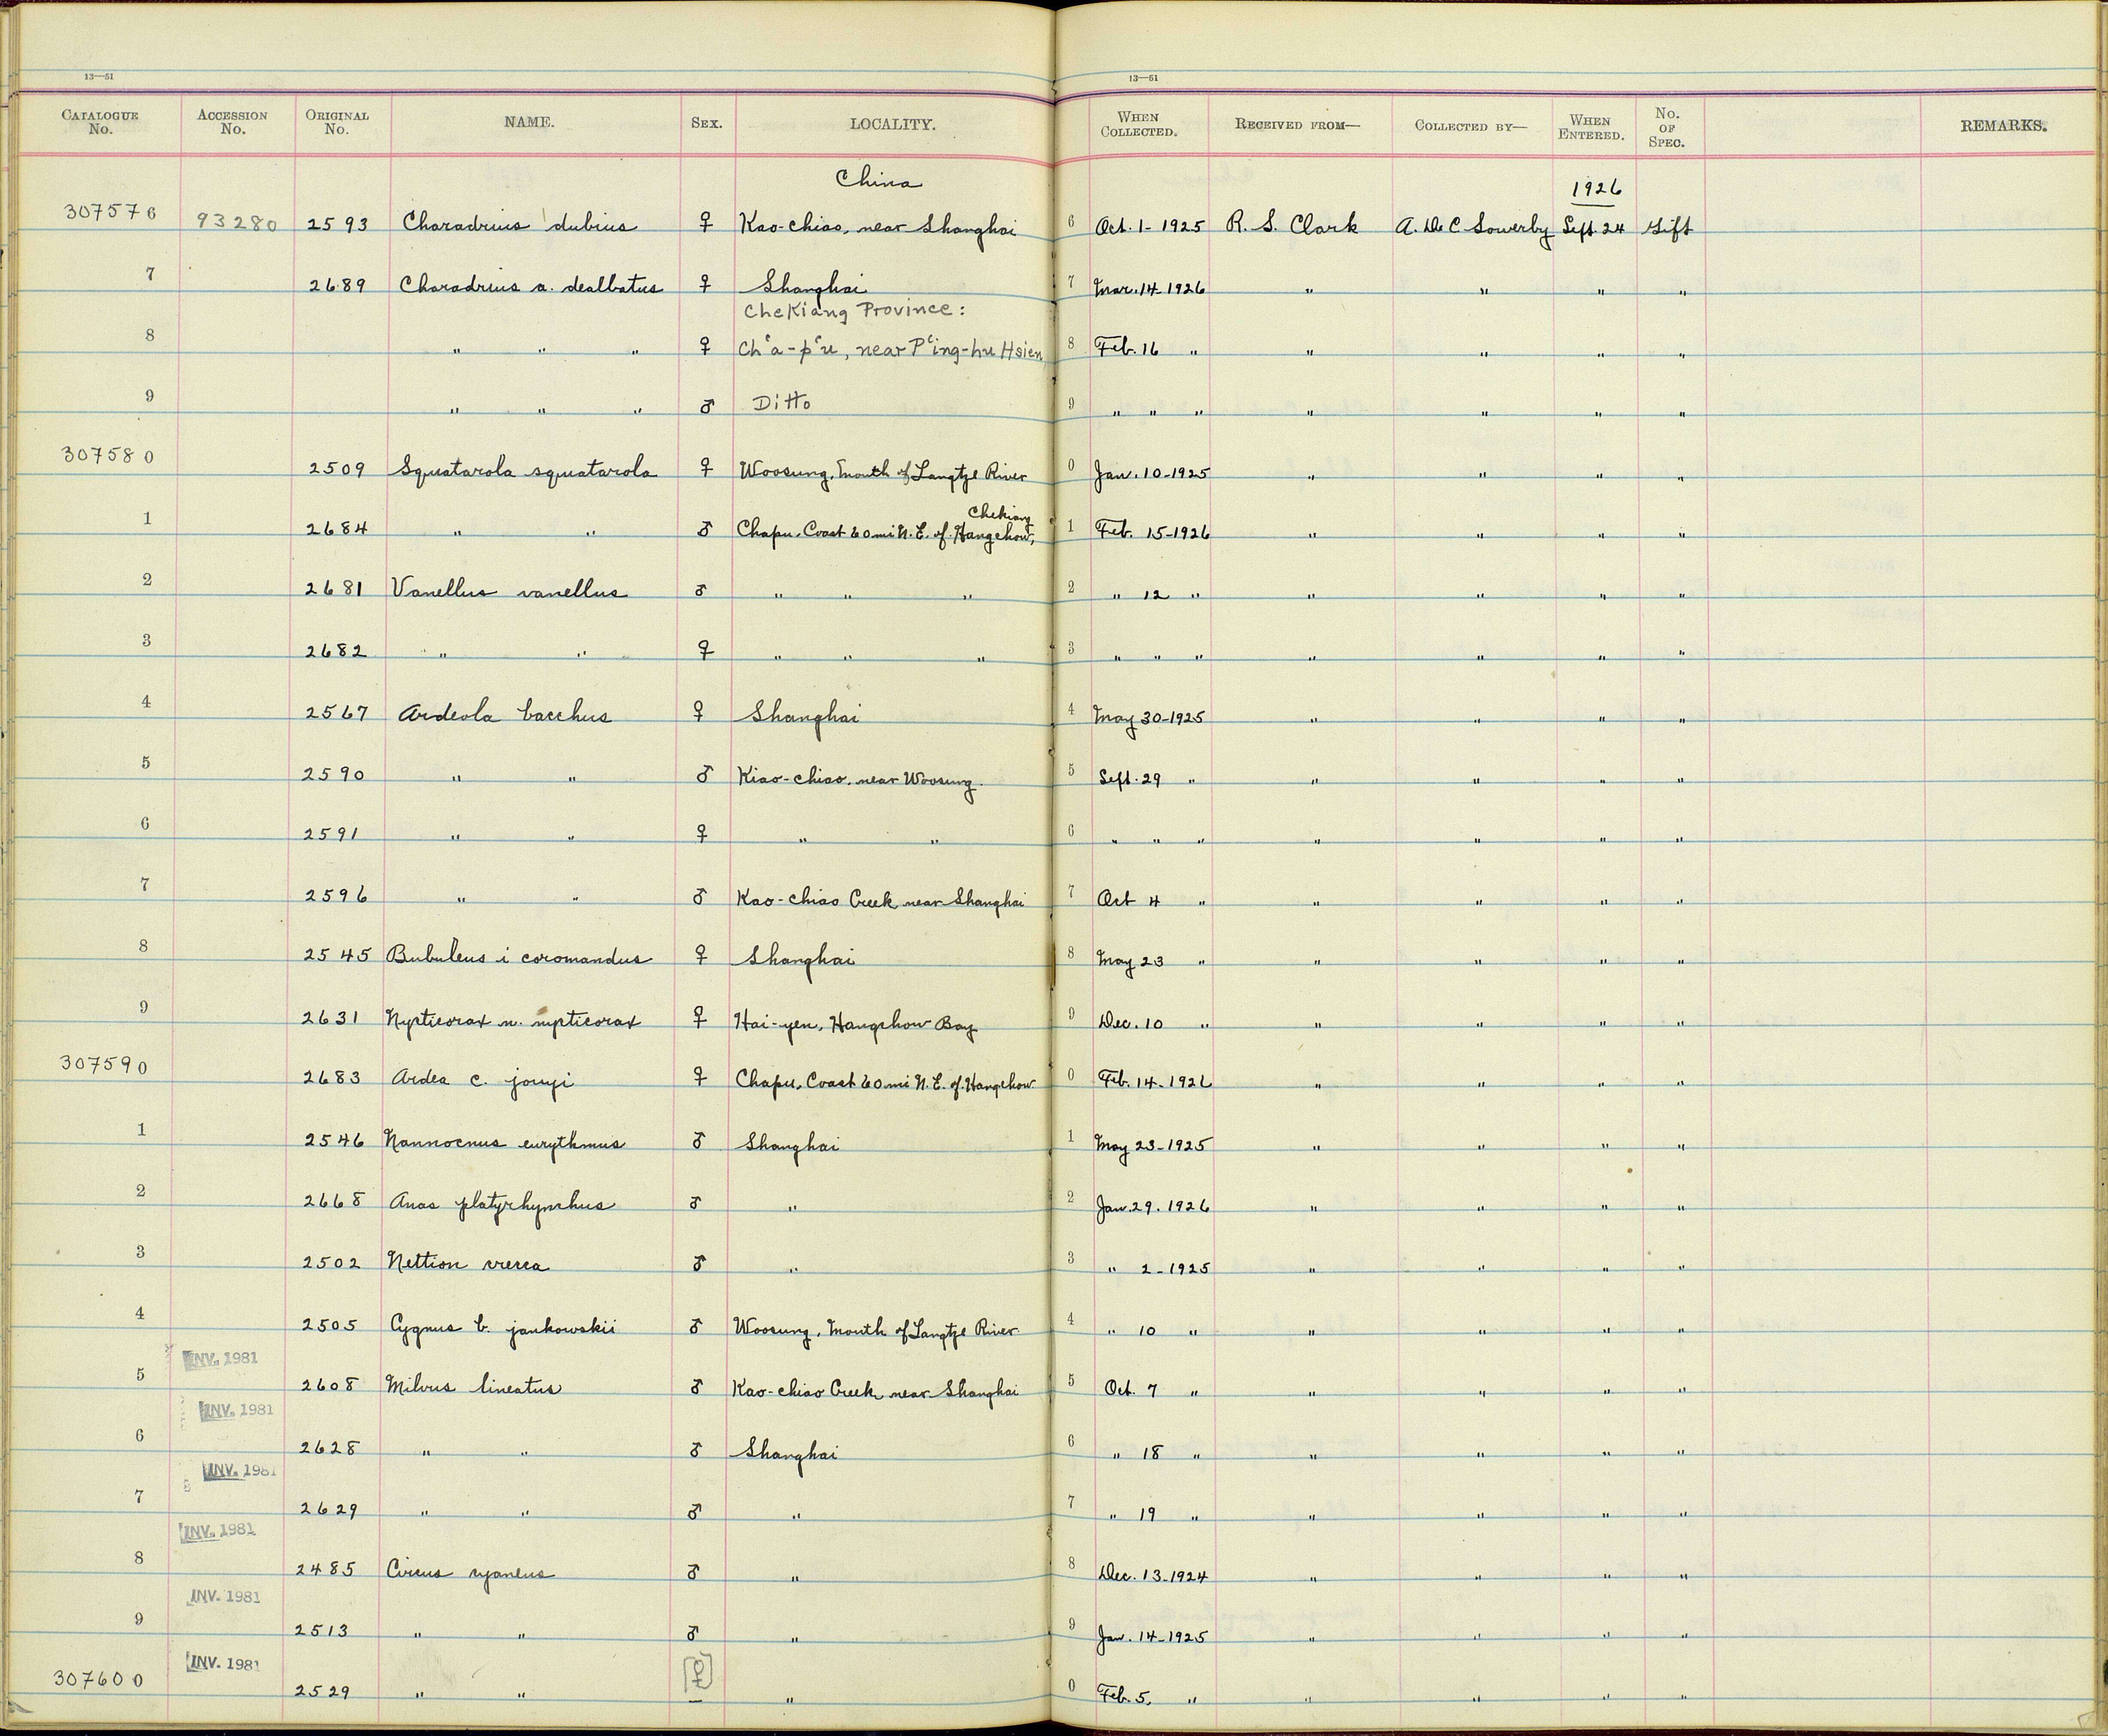 13—51
13—51
CATALOGUE No. ACCESSION No. ORIGINAL No. NAME. SEX. LOCALITY. WHEN COLLECTED. RECEIVED FROM— COLLECTED BY— WHEN ENTERED. No. OF SPEC. REMARKS.
China 1926
307576 93280 2593 Charadrius dubius ♀ Kao-chiao, near Shanghai 6 Oct. 1-1925 R. S. Clark A. de C Sowerby Sept. 24 Gift
7 2689 Charadrius a. dealbatus ♀ Shanghai 7 Mar. 14-1926 " " " "
CheKiang Province:
8 " " " ♀ Ch'a-p'u, near P'ing-hu Hsien 8 Feb. 16 " " " " "
9 " " " ♂ Ditto 9 " " " " " " "
307580 2509 Squatarola squatarola ♀ Woosung, Mouth of Yangtze River 0 Jan. 10-1925 " " " "
Chekiang
1 2684 " " ♂ Chapu, Coast 60 mi N.E. of Hangchow, 1 Feb. 15-1926 " " " "
2 2681 Vanellus vanellus ♂ " " " 2 " 12 " " " " "
3 2682 " " ♀ " " " 3 " " " " " " "
4 2567 Ardeola bacchus ♀ Shanghai 4 May 30-1925 " " " "
5 2590 " " ♂ Kiao-chiao, near Woosung 5 Sept. 29 " " " " "
6 2591 " " ♀ " " 6 " " " " " " "
7 2596 " " ♂ Kao-chiao Creek near Shanghai 7 Oct 4 " " " " "
8 2545 Bubulcus i coromandus ♀ Shanghai 8 May 23 " " " " "
9 2631 Nycticorax n. nycticorax ♀ Hai-yen, Hangchow Bay 9 Dec. 10 " " " " "
307590 2683 Ardea c. jouyi ♀ Chapu, Coast 60 mi N.E. of Hangchow 0 Feb. 14-1926 " " " "
1 2546 Nannocnus eurythmus ♂ Shanghai 1 May 23-1925 " " " "
2 2668 Anas platyrhynchus ♂ " 2 Jan. 29. 1926 " " " "
3 2502 Nettion crecca ♂ " 3 " 2-1925 " " " "
4 2505 Cygnus b. jankowskii ♂ Woosung, Mouth of Yangtze River 4 " 10 " " " " "
INV. 1981
5 2608 Milvus lineatus ♂ Kao-chiao Creek near Shanghai 5 Oct. 7 " " " " "
INV. 1981
6 2628 " " ♂ Shanghai 6 " 18 " " " " "
INV. 1981
7 2629 " " ♂ " 7 " 19 " " " " "
INV. 1981
8 2485 Circus cyaneus ♂ " 8 Dec. 13-1924 " " " "
INV. 1981
9 2513 " " ♂ " 9 Jan. 14-1925 " " " "
INV. 1981
307600 2529 " " [♀] " 0 Feb. 5. " " " " "